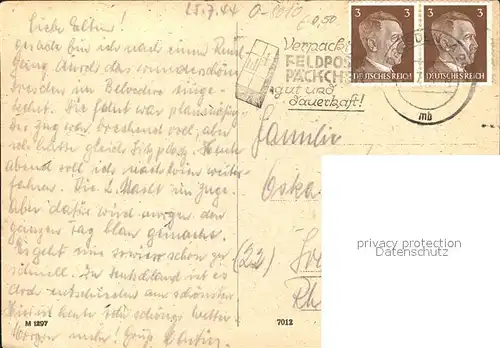 25.7.44
0,50
Liebe Eltern!
gerade bin ich nach einem Rund
gang durch das wunderschöne
Dresden im Belvedere einge
kehrt. Die Fahrt war planmäßig
der Zug war brechend voll, aber
ich hatte gleich Sitzplatz. Heute
abend soll ich noch weiter
fahren. Die 2. Nacht im Zuge.
Aber dafür wird morgen den
ganzen Tag blau gemacht.
Es geht uns sowieso schon zu
schnell. In Deutschland ist es
doch entschieden am schönsten
Hier ist heute sehr schönes Wetter
Morgen mehr! Gruß
M 1297
7012
Verpackt
FELDPOS
PÄCKCHE
gut und
dauerhaft!
3 3
DEUTSCHES REICH DEUTSCHES REICH
mb
Familie
Oska
(22)
Rh
privacy protection
Datenschutz